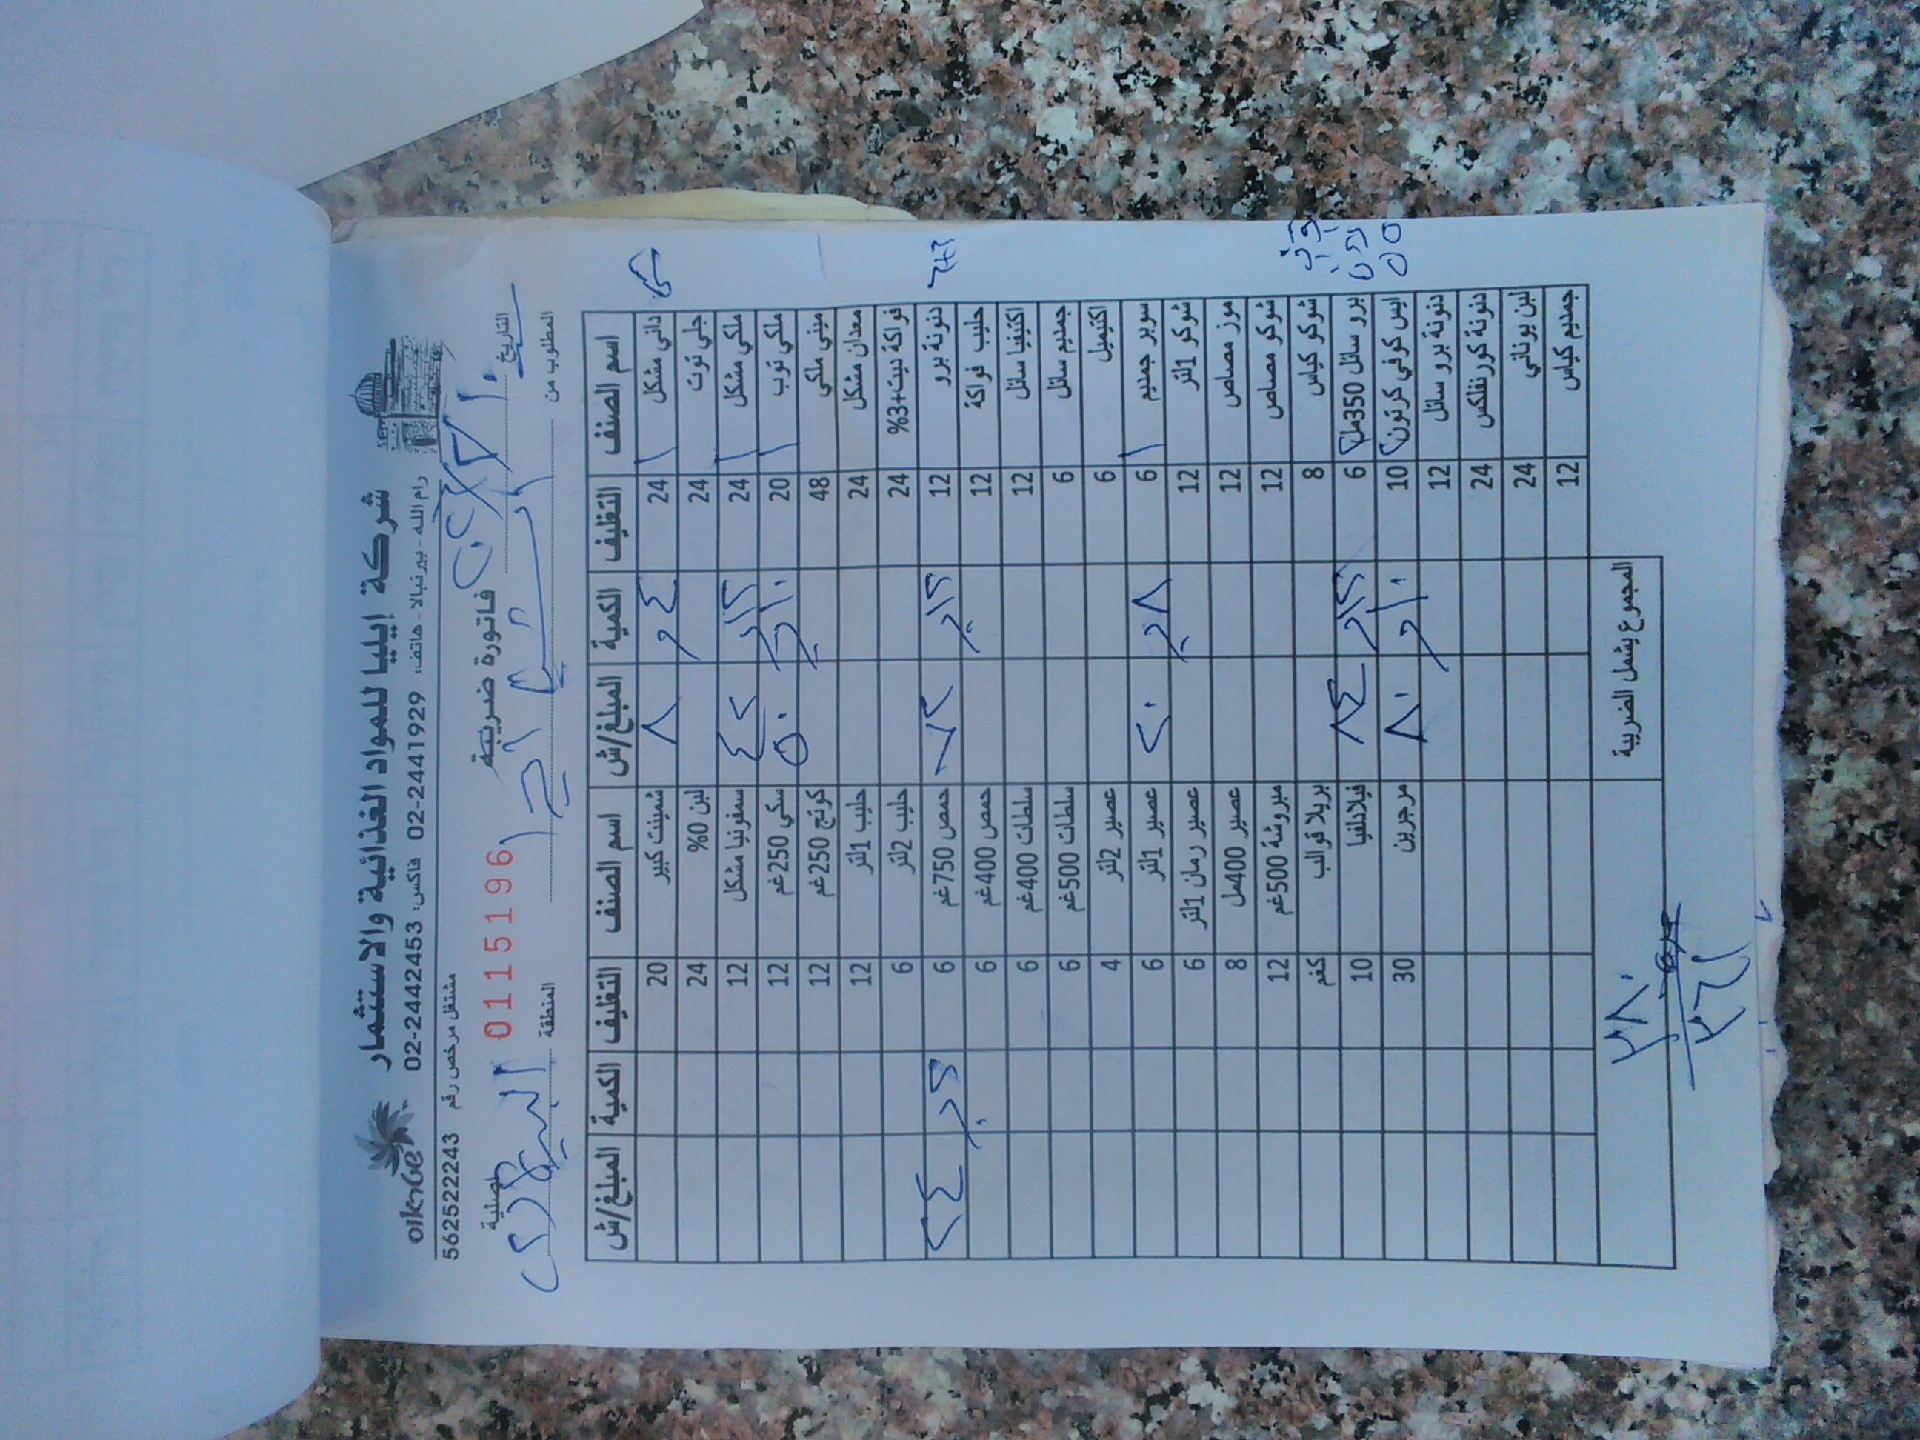 شركة إيليا للمواد الغذائية والاستثمار
رام الله - بيرنبالا - هاتف: 02-2441929 فاكس: 02-2442453
مشتغل مرخص رقم 562522243
التاريخ
فاتورة ضريبية 0115196 أصلية
المطلوب من المنطقة
اسم الصنف التغليف الكمية المبلغ/ش اسم الصنف التغليف الكمية المبلغ/ش
داني مشكل 24 ٨ شمينت كبير 20
جلي توت 24 لبن 0% 24
ملكي مشكل 24 ٤٢ سمفونيا مشكل 12
ملكي توب 20 ٥٠ سكي 250غم 12
ميني ملكي 48 كوتج 250غم 12
معدان مشكل 24 حليب 1لتر 12
فواكة ديت+3% 24 حليب 2لتر 6
دنونة برو 12 ٧٢ حمص 750غم 6 ٢٤
حليب فواكة 12 حمص 400غم 6
اكتيفيا سائل 12 سلطات 400غم 6
جمنيم سائل 6 سلطات 500غم 6
اكتيميل 6 عصير 2لتر 4
سوبر جمنيم 6 ٢٠ عصير 1لتر 6
شوكو 1لتر 12 عصير رمان 1لتر 6
موز مصاص 12 عصير 400مل 8
شوكو مصاص 12 مبروشة 500غم 12
شوكو كياس 8 بريلا قوالب كغم
برو سائل 350مل 6 ٨٤ فيلادلفيا 10
ايس كوفي كرتون 10 ٨٠ مرجرين 30
دنونة برو سائل 12
دنونة كورنفلكس 24
لبن يوناني 24
جمنيم كياس 12
المجموع يشمل الضريبة ٣٨٠
٣٦١